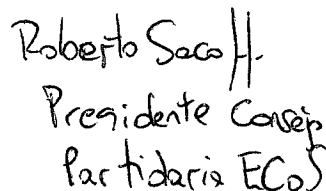 Roberto Saco H.
Presidente Consejo
Partidaria ECoS